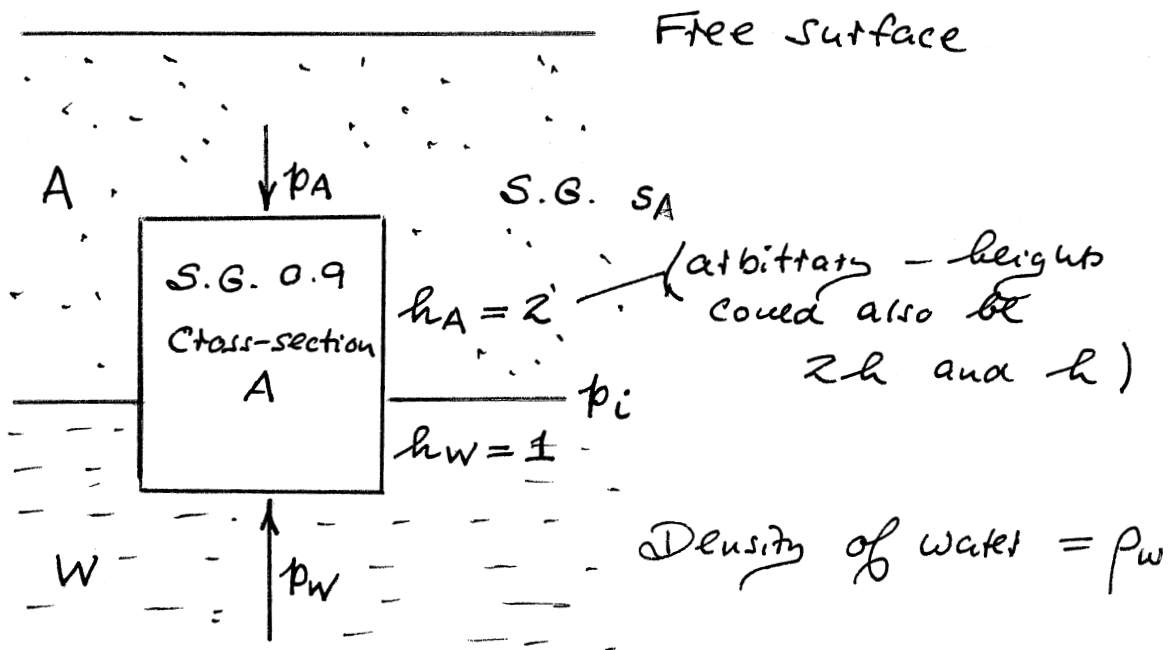 Free surface
A
pA
S.G. sA
S.G. 0.9
Cross-section
A
hA = 2
(arbitrary - heights
could also be
2h and h)
pi
hW = 1
W
pW
Density of water = ρw